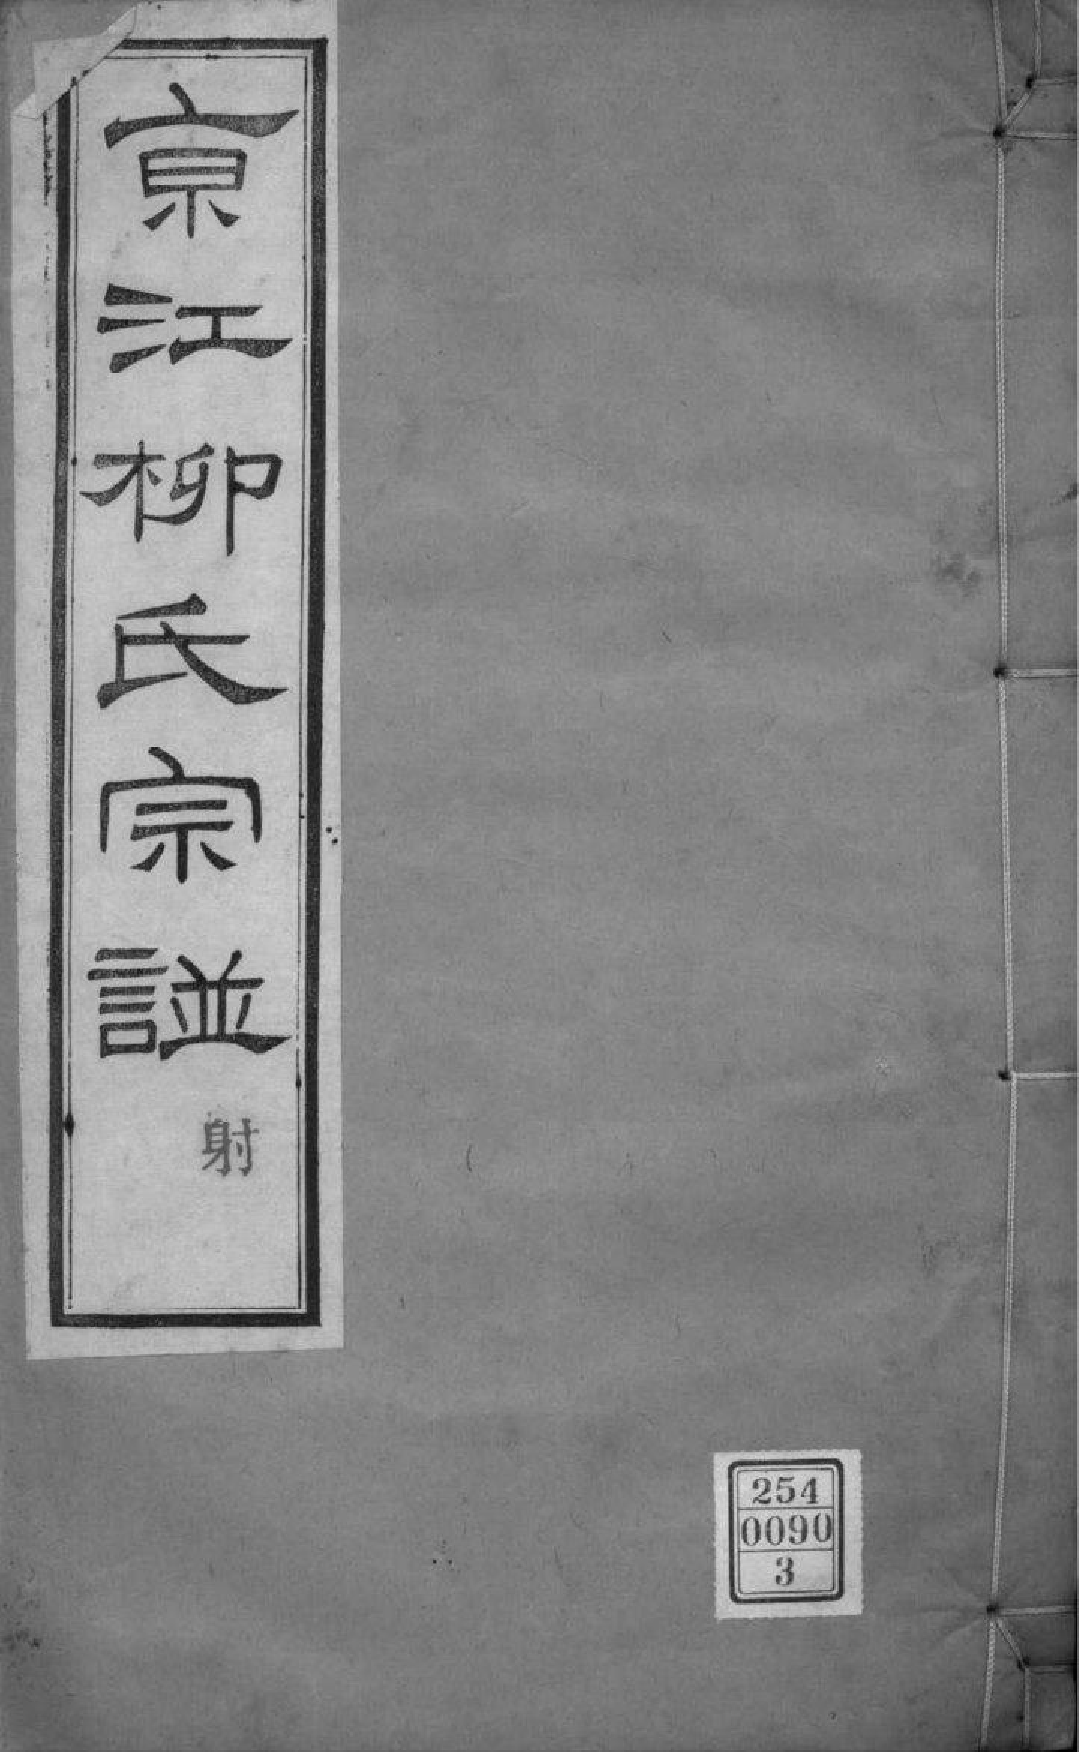 京江柳氏宗譜
射
254
0090
3